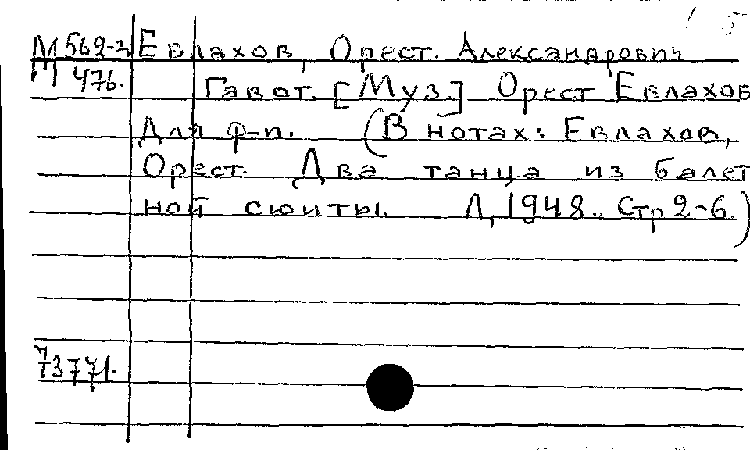 М569-2 Евлахов, Орест. Александрович
П 476. Гавот. [Муз] Орест Евлахов
Для ф-п. (В нотах: Евлахов,
Орест. Два танца из балет
ной сюиты. Л, 1948. Стр 2-6.)
73771.